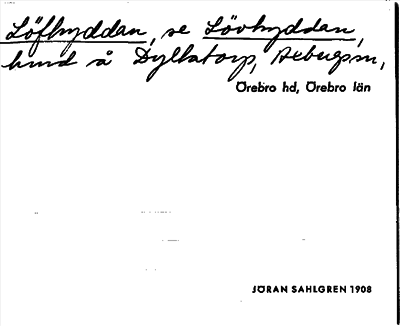 Löfhyddan, se Lövhyddan,
hmd å Dyltatorp, Axbergs sn,
Örebro hd, Örebro län
JÖRAN SAHLGREN 1908